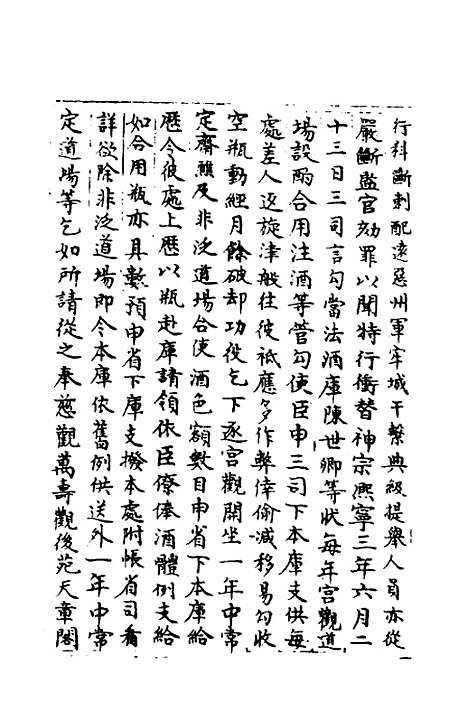 行科斷刺配遠惡州軍牢城干繫典級提舉人員亦從
嚴斷監官劾罪以聞特行衝替神宗熙寧三年六月二
十三日三司言勾當法酒庫陳世卿等狀每年宮觀道
場設酹合用注酒等管勾使臣申三司下本庫支供每
處差人迓旋津般往彼祗應多作弊倖偷減移易勾收
空瓶動經月餘破却功役乞下逐宮觀開坐一年中常
定齋醮及非泛道場合使酒色額數目申省下本庫給
曆令彼處上曆以瓶赴庫請領依臣僚俸酒體例支給
如合用瓶亦具數預申省下庫支撥本處附帳省司看
詳欲除非泛道場即令本庫依舊例供送外一年中常
定道場等乞如所請從之奉慈觀萬壽觀後苑天章閣